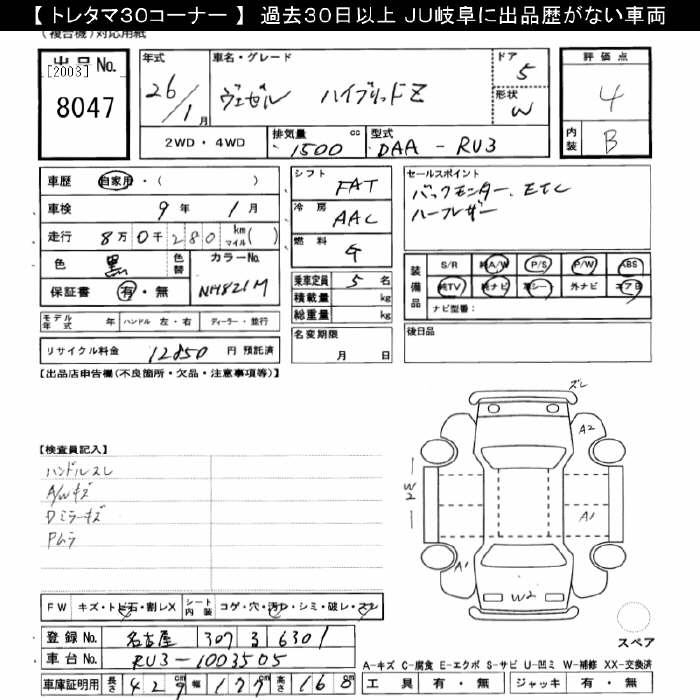 【トレタマ30コーナー】 過去30日以上 JU岐阜に出品歴がない車両
(複合機)対応用紙
出品No.
[2003]
8047
年式 車名・グレード ドア 評価点
26/1月 ヴェゼル ハイブリッドZ 5 4
形状 W
内装 B
2WD・4WD 排気量 1500 cc 型式 DAA-RU3
車歴 自家用・( )
車検 9年 1月
走行 8万0千280 km マイル( )
色 黒 色替 カラーNo. NH821M
保証書 有・無
シフト FAT
冷房 AAC
燃料 G
乗車定員 5 名
積載量 kg
総重量 kg
名変期限 月 日
セールスポイント
バックモニター、ETC
ハーフレザー
装備品 S/R 純A/W P/S P/W ABS
純TV 純ナビ 革シート 外ナビ エアB
ナビ型番:
後日品
モデル年式 年 ハンドル 左・右 ディーラー・並行
リサイクル料金 12850 円 預託済
【出品店申告欄(不良箇所・欠品・注意事項等)】
【検査員記入】
ハンドルスレ
A/Wキズ
Dミラーキズ
Pムラ
ズレ
A2
W2
A1
A1
W2
スペア
FW キズ・トビ石・割レX シート内装 コゲ・穴・汚レ・シミ・破レ・スレ
登録No. 名古屋 307 る 6301
車台No. RU3-1003505
車庫証明用 長さ 429 幅 177 高さ 160
A-キズ C-腐食 E-エクボ S-サビ U-凹ミ W-補修 XX-交換済
工具 有・無 ジャッキ 有・無